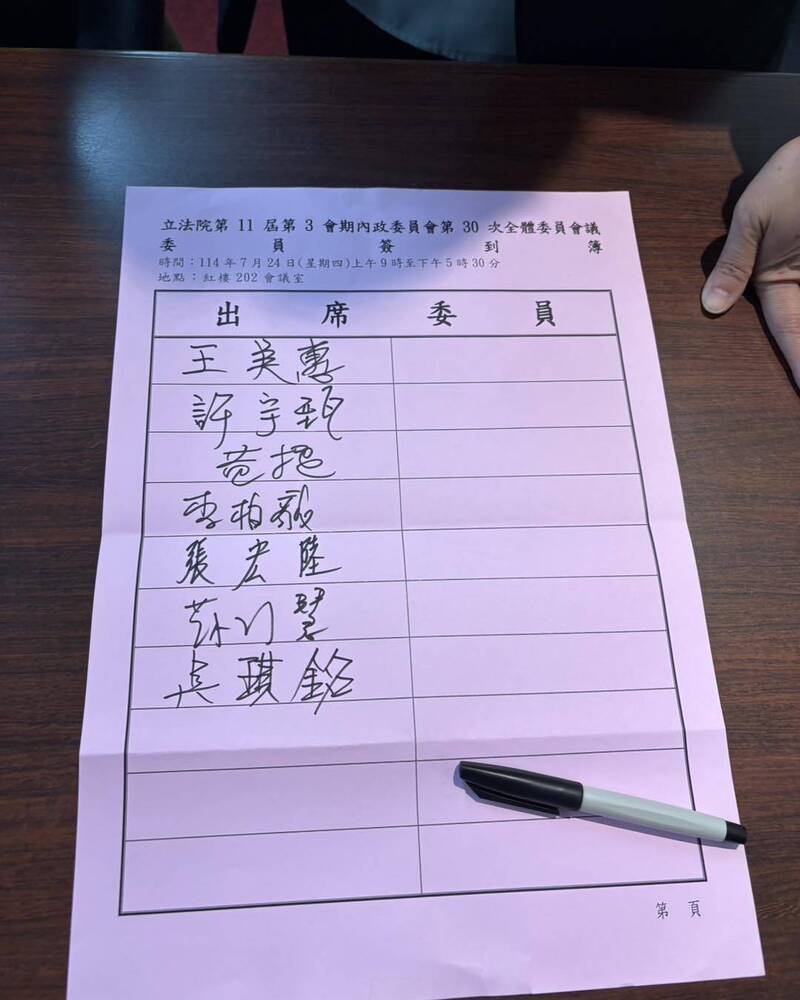 立法院第 11 屆第 3 會期內政委員會第 30 次全體委員會議
委員簽到簿
時間：114 年 7 月 24 日(星期四)上午 9 時至下午 5 時 30 分
地點：紅樓 202 會議室
出席委員
王美惠
許宇甄
黃捷
李柏毅
張宏陸
蘇巧慧
吳琪銘
第 頁